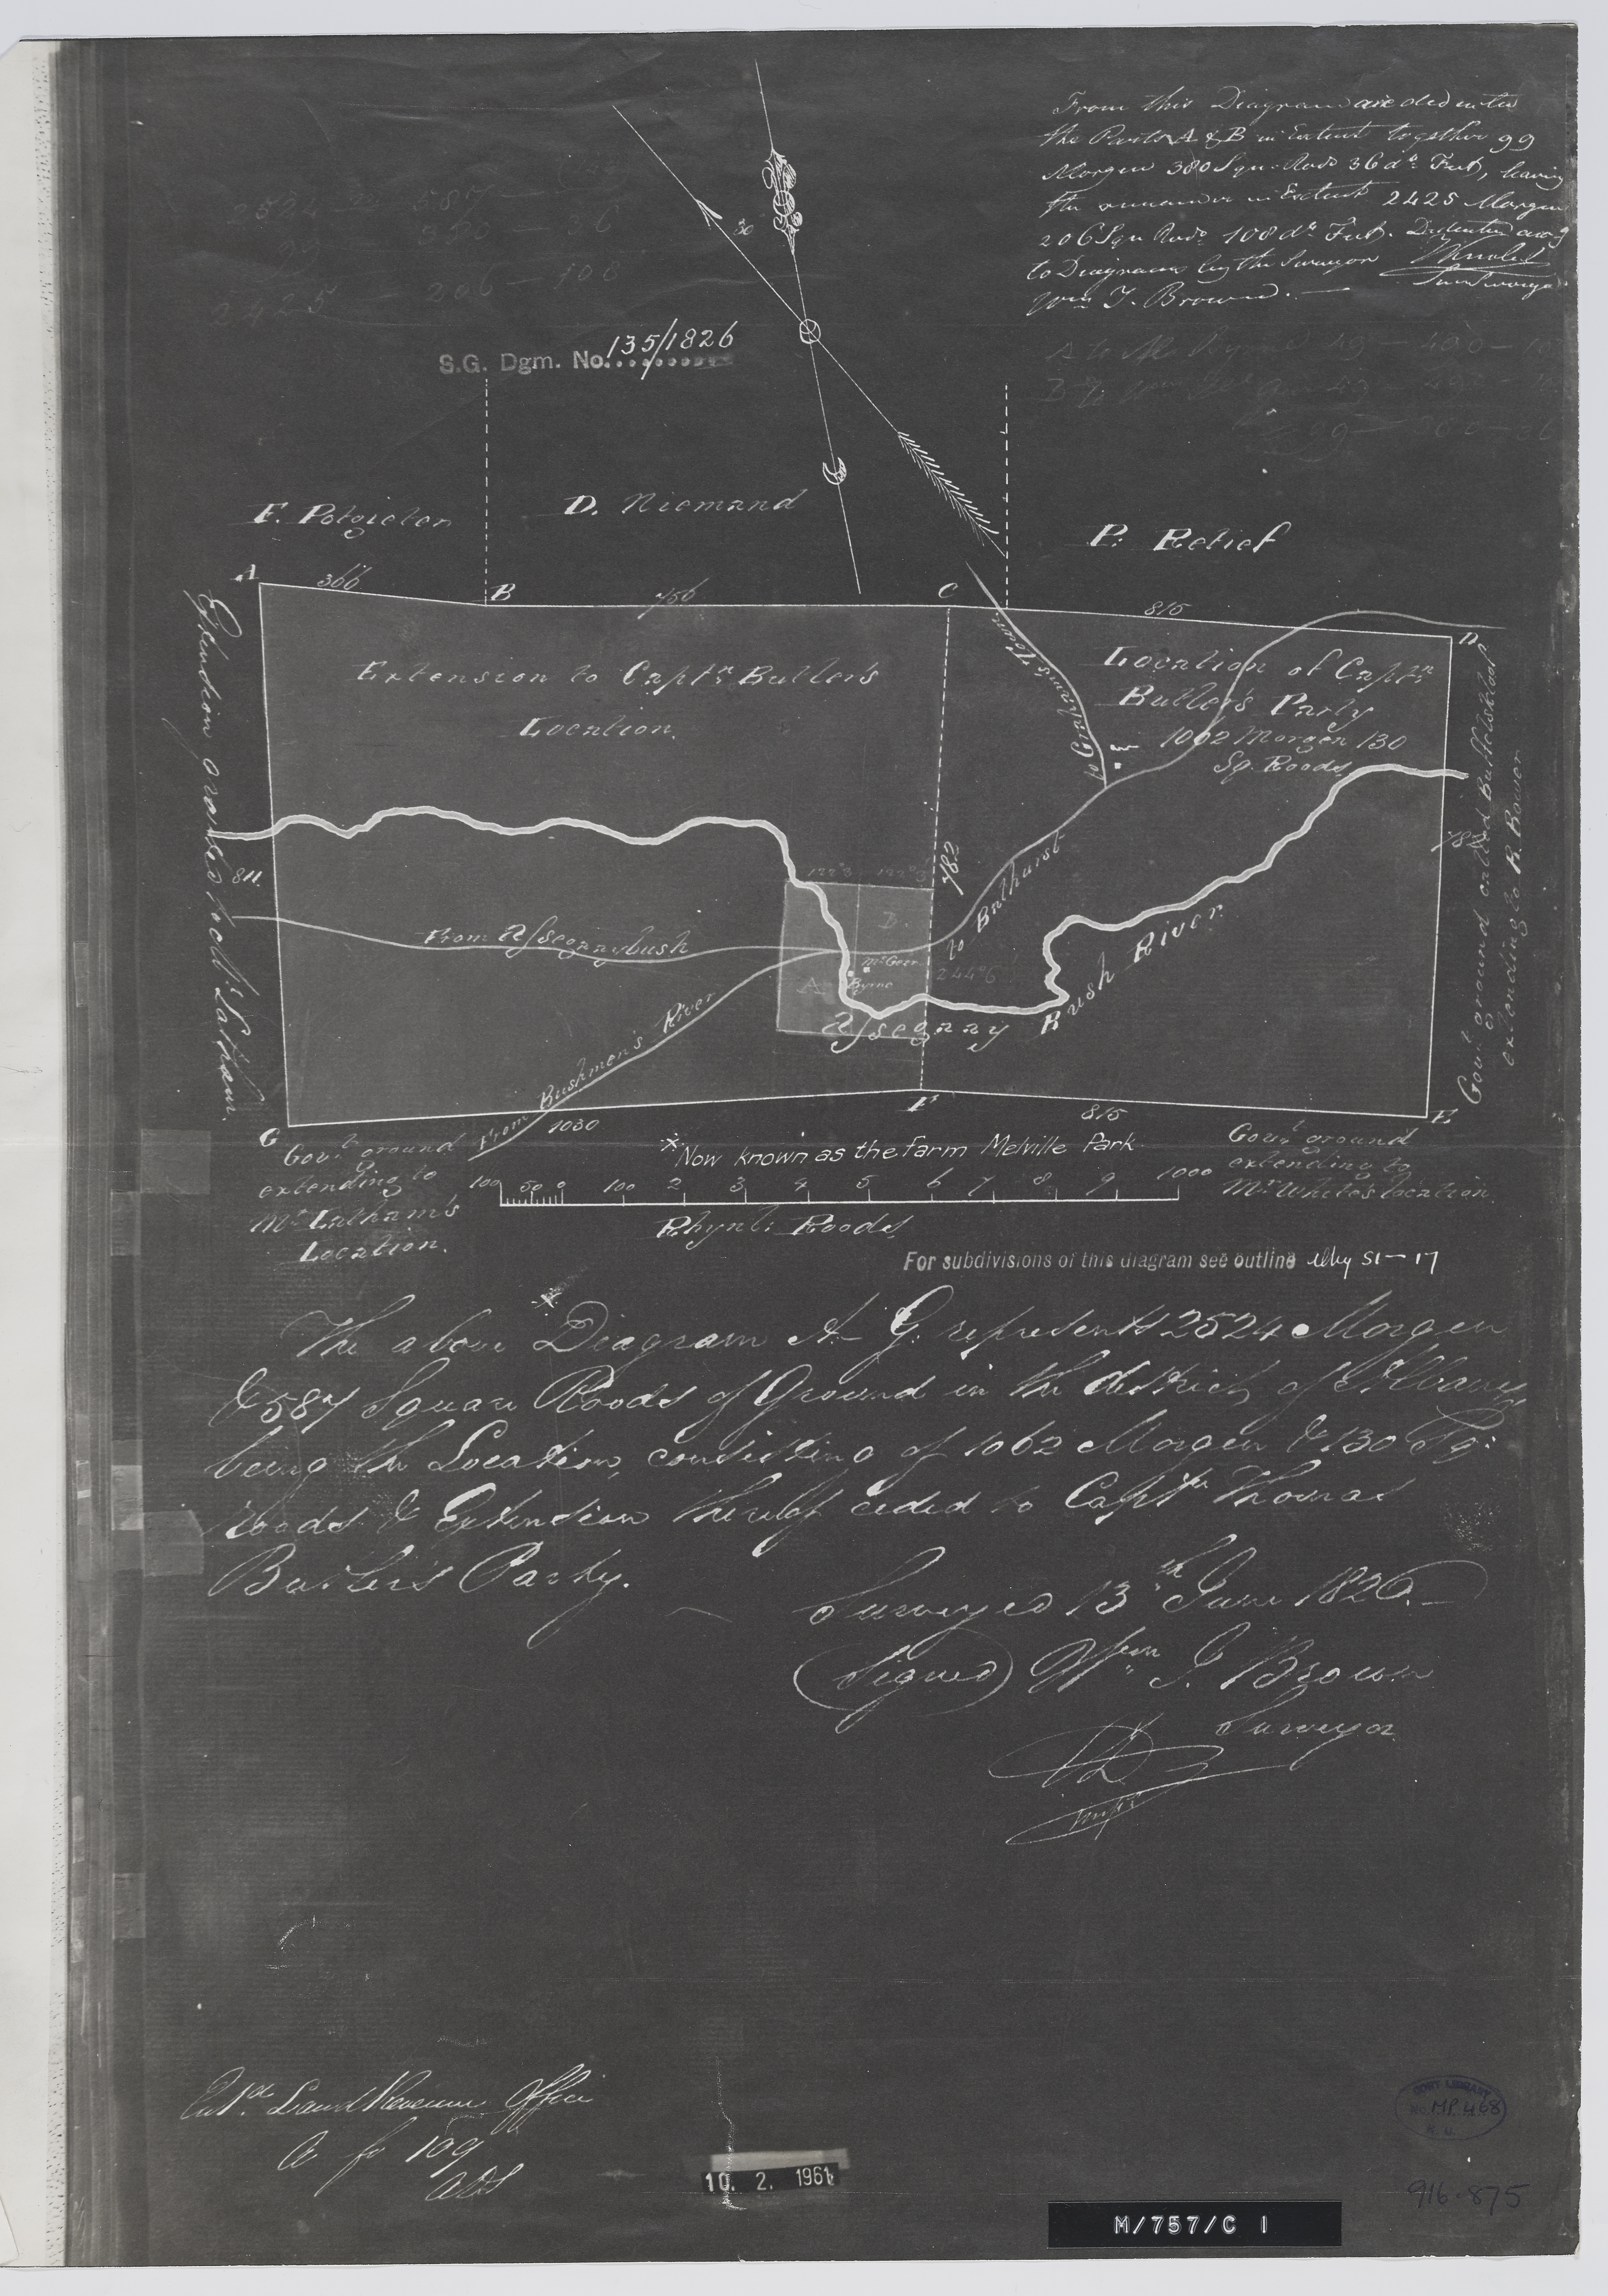 From this Diagram are deducted
the Parts A & B in Extent together 99
Morgen 380 Squ. Rods 36 do. Feet, leaving
the remainder in Extent 2425 Morgen
206 Squ Rods 108 do. Feet.
to Diagrams by the Surveyor
Wm J. Brown.
2524 587
99 380 — 36
2425 — 206 — 108
S.G. Dgm. No. 135/1826
30
F. Potgieter
D. Niemand
P. Retief
A
366
B
756
C
815
D
Extension to Captn. Butler's
Location.
Location of Captn.
Butler's Party
1062 Morgen 130
Sq. Roods.
to Graham's Town
Extension granted to
Latham.
811.
782
782
Govt. ground called
extending to R. Bower
to Bathurst
From Assegaaybush
D.
Mc Geer
Byrne
A
244
Assegaay Bush River
From Bushmen's River
G
1030
F
815
E
Govt. ground
extending to
Mr. Latham's
Location.
*Now known as the farm Melville Park
Govt. ground
extending to
Mr. White's location.
100 50 0 100 2 3 4 5 6 7 8 9 1000
Rhynl: Roods.
For subdivisions of this diagram see outline Alby S1-17
The above Diagram A-G. represents 2524 Morgen
& 587 Square Roods of Ground in the district of Albany
being the Location, consisting of 1062 Morgen & 130 Sq:
roods & Extension thereof ceded to Captn Thomas
Butler's Party.
Surveyed 13th June 1826.
(Signed) Wm J. Brown
Surveyor
Entd. Land Revenue Office
fo 109
10. 2. 1961
GOVT LIBRARY
No. MP.468
916.875
M/757/C 1